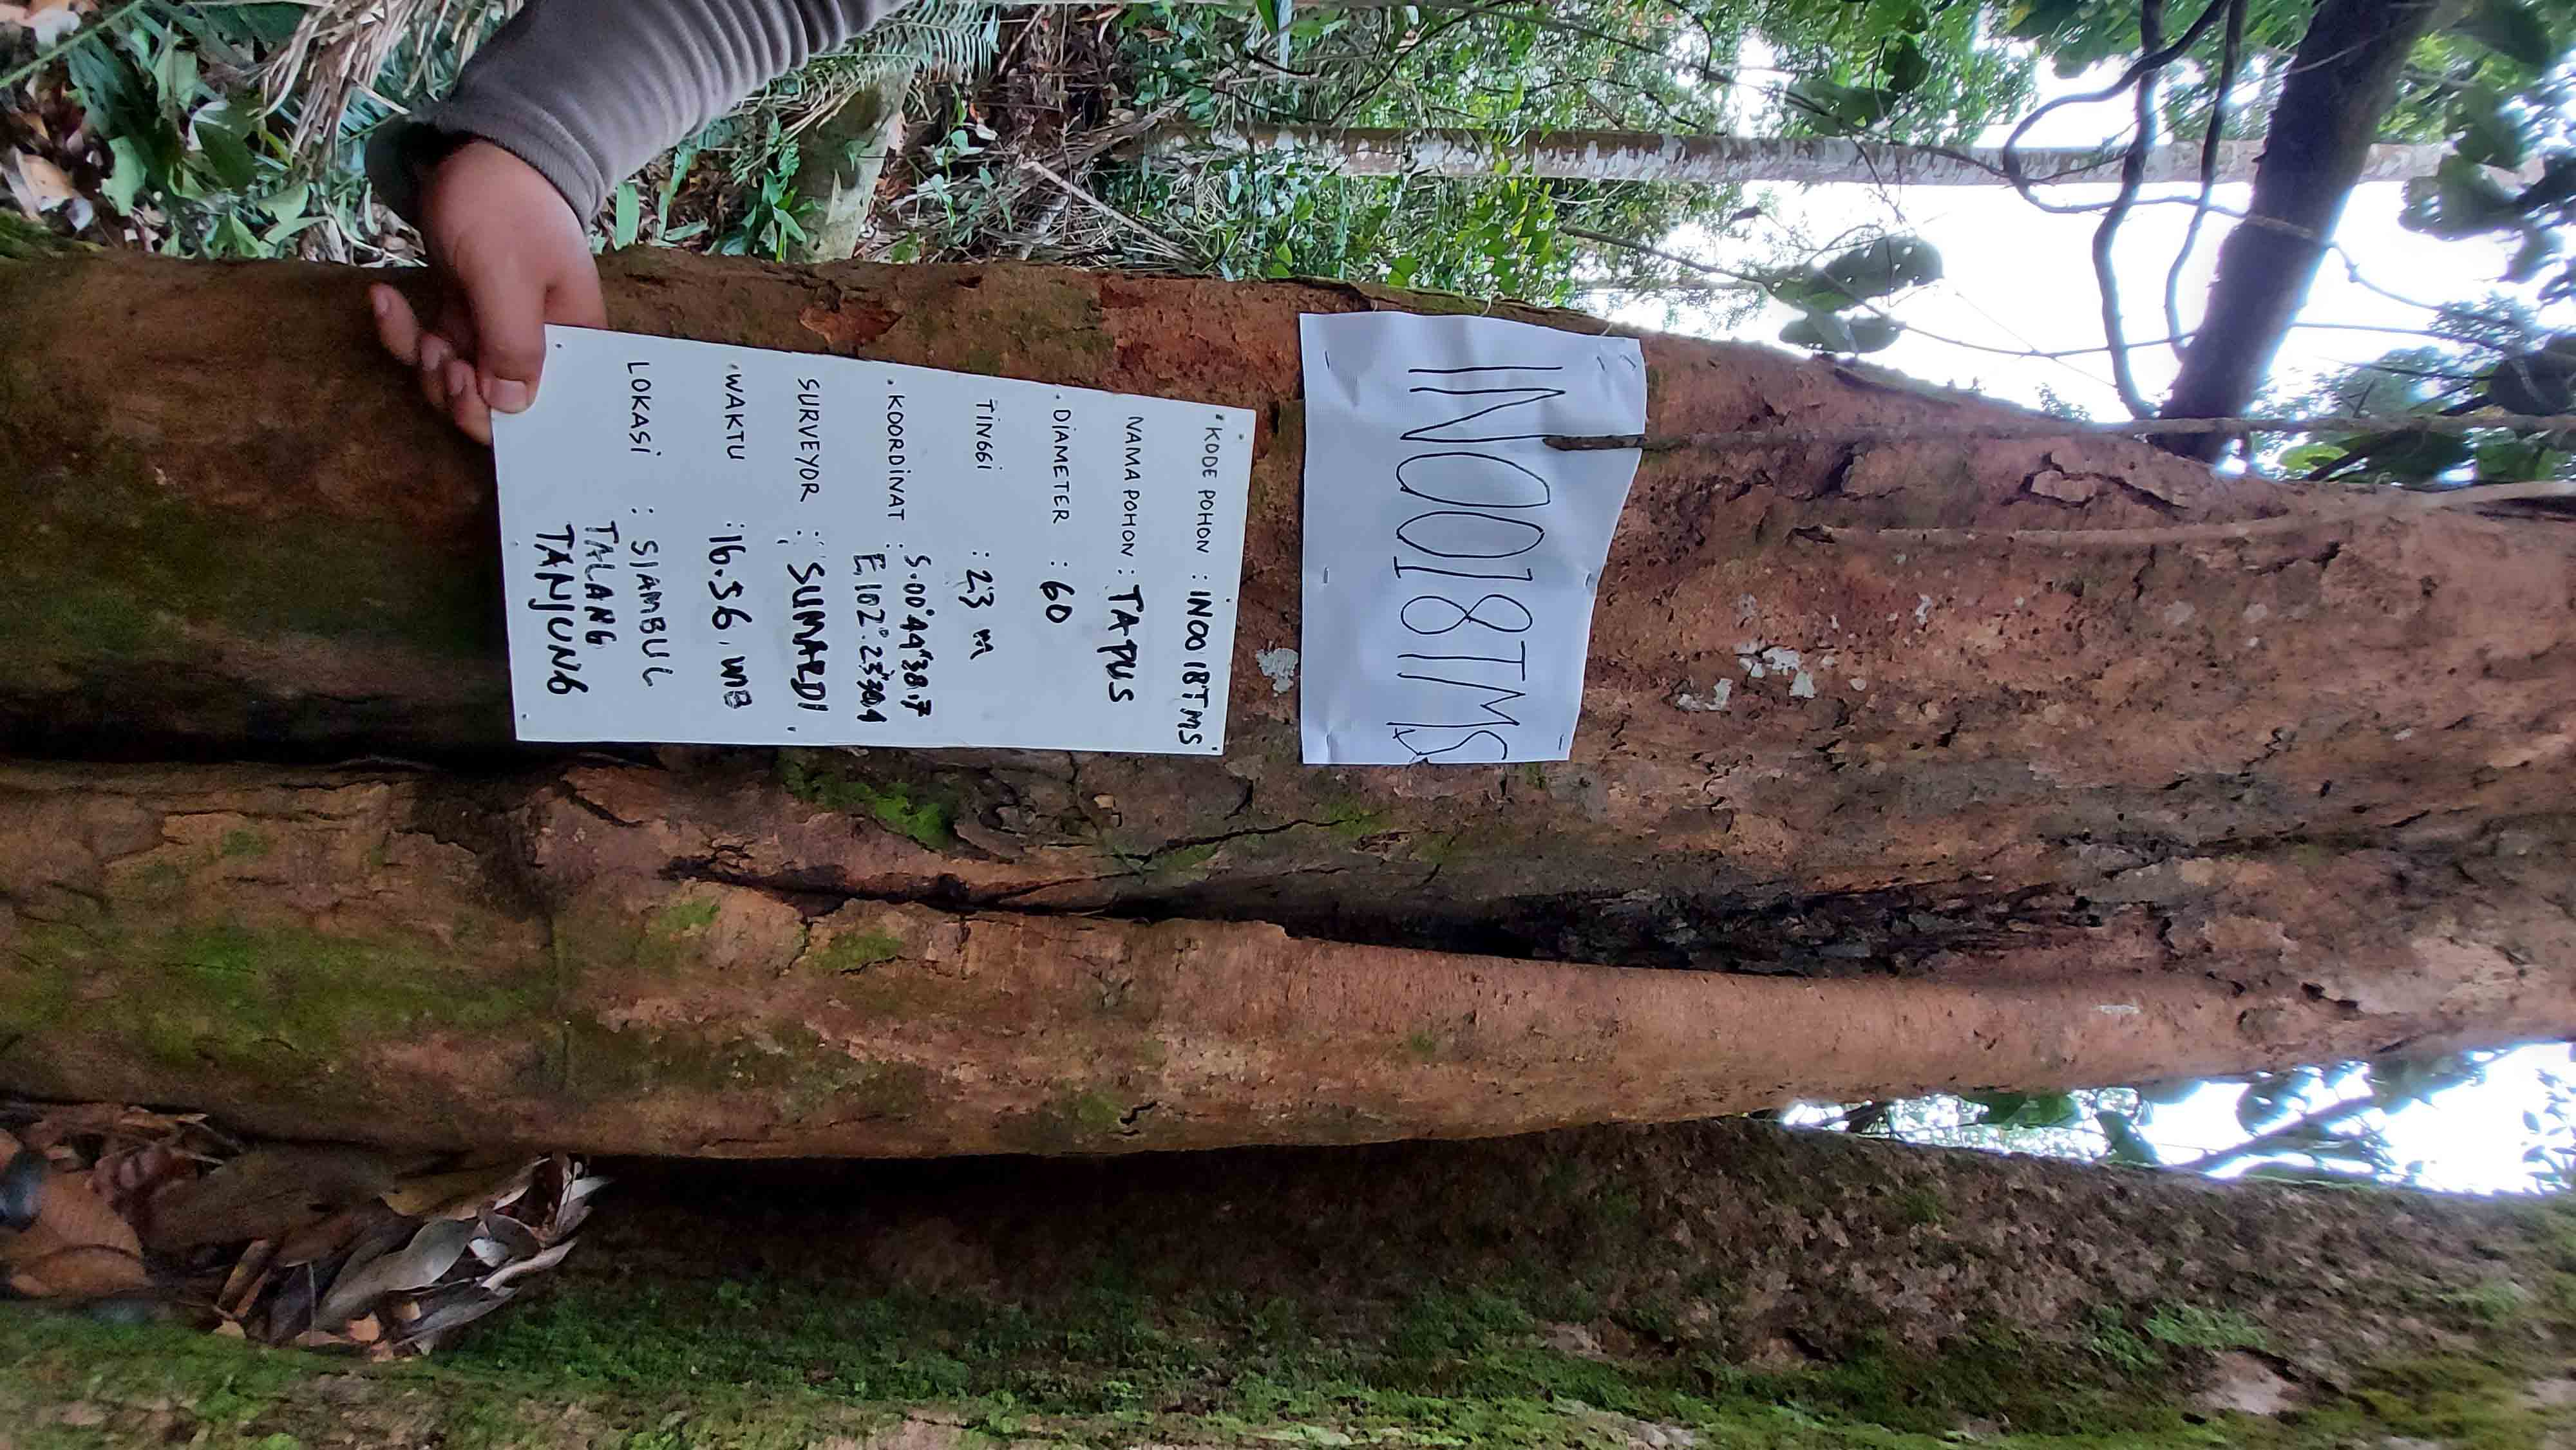 IN0018TMS
KODE POHON : IN0018TMS
NAMA POHON : TAPUS
DIAMETER : 60
TINGGI : 23 m
KOORDINAT : S.00°44'38,7
E.102°.23'
SURVEYOR : SUMARDI
WAKTU : 16.56, WIB
LOKASI : SIAMBUL
TALANG
TANJUNG